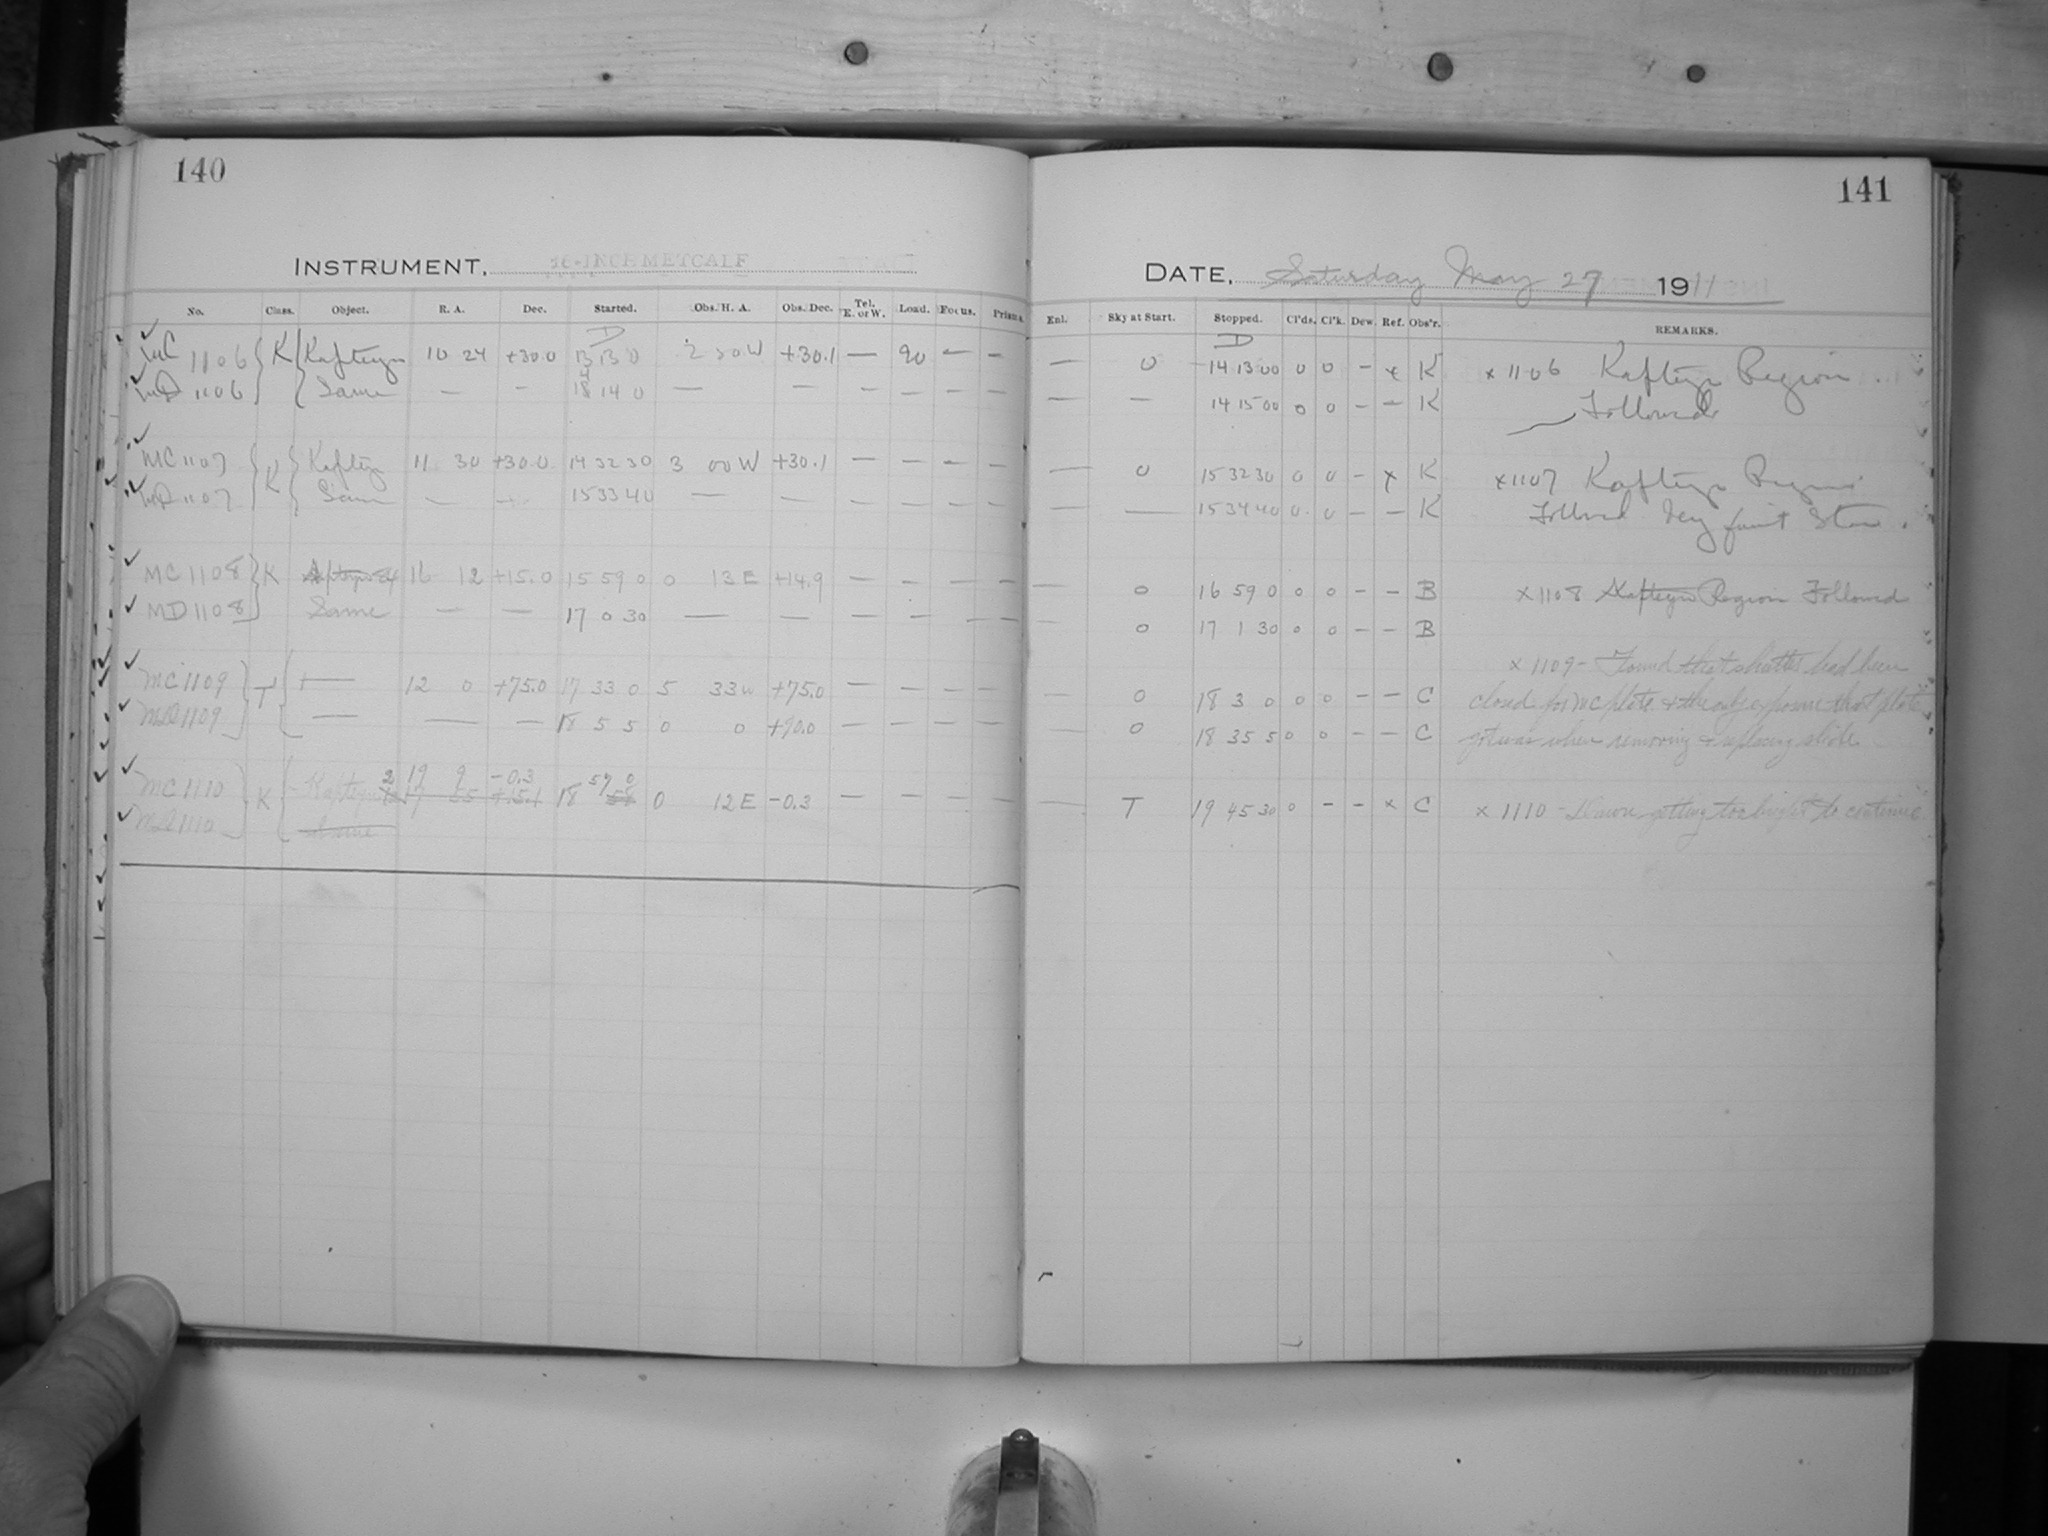 140
INSTRUMENT, 16-INCH METCALF
No. Class. Object. R. A. Dec. Started. Obs. H. A. Obs. Dec. Tel. E. or W. Load. Focus. Prisms
D
MC 1106 K Kapteyn 10 24 +30.0 13 13 0 2 50 W +30.1 — 90 — —
MD 1106 Same — — 14 14 0 — — — — —
MC 1107 K Kapteyn 11 30 +30.0 14 32 30 3 00 W +30.1 — — — —
MD 1107 Same — — 15 33 40 — — — — — —
MC 1108 K 16 12 +15.0 15 59 0 0 13 E +14.9 — — — —
MD 1108 Same — — 17 0 30 — — — — — —
MC 1109 T — 12 0 +75.0 17 33 0 5 33 W +75.0 — — — —
MD 1109 — — — 18 5 5 0 0 +90.0 — — — —
2 19 9 -0.3 57 0
MC 1110 K Kapteyn 18 0 12 E -0.3 — — — —
MD 1110 Same
141
DATE, Saturday May 27 1911
Enl. Sky at Start. Stopped. Cl'ds. Cl'k. Dew. Ref. Obs'r. REMARKS.
D
— 0 14 13 00 0 0 — x K x 1106 Kapteyn Region.
— — 14 15 00 0 0 — — K Followed
— 0 15 32 30 0 0 — x K x 1107 Kapteyn Region
— — 15 34 40 0 0 — — K Followed Very faint Star.
— 0 16 59 0 0 0 — — B x 1108 Kapteyn Region Followed
— 0 17 1 30 0 0 — — B
x 1109 - Found that shutter had been
— 0 18 3 0 0 0 — — C closed for MC plate & the only exposure that plate
— 0 18 35 5 0 0 — — C got was when removing & replacing slide.
— T 19 45 30 0 — — x C x 1110 - Dawn getting too bright to continue